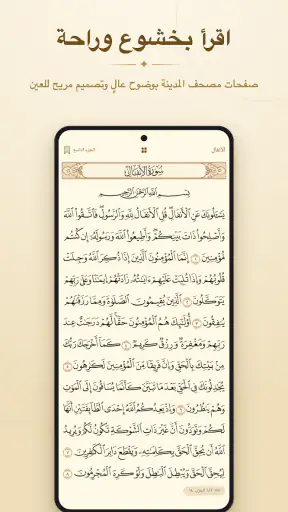 اقرأ بخشوع وراحة
صفحات مصحف المدينة بوضوح عالٍ وتصميم مريح للعين
الأنفال
الجزء التاسع
سُورَةُ الأَنفَالِ
بِسْمِ ٱللَّهِ ٱلرَّحْمَٰنِ ٱلرَّحِيمِ
يَسْـَٔلُونَكَ عَنِ ٱلْأَنفَالِ قُلِ ٱلْأَنفَالُ لِلَّهِ وَٱلرَّسُولِ فَٱتَّقُوا۟ ٱللَّهَ
وَأَصْلِحُوا۟ ذَاتَ بَيْنِكُمْ وَأَطِيعُوا۟ ٱللَّهَ وَرَسُولَهُۥٓ إِن كُنتُم
مُّؤْمِنِينَ ١ إِنَّمَا ٱلْمُؤْمِنُونَ ٱلَّذِينَ إِذَا ذُكِرَ ٱللَّهُ وَجِلَتْ
قُلُوبُهُمْ وَإِذَا تُلِيَتْ عَلَيْهِمْ ءَايَٰتُهُۥ زَادَتْهُمْ إِيمَٰنًا وَعَلَىٰ رَبِّهِمْ
يَتَوَكَّلُونَ ٢ ٱلَّذِينَ يُقِيمُونَ ٱلصَّلَوٰةَ وَمِمَّا رَزَقْنَٰهُمْ
يُنفِقُونَ ٣ أُو۟لَٰٓئِكَ هُمُ ٱلْمُؤْمِنُونَ حَقًّا لَّهُمْ دَرَجَٰتٌ عِندَ
رَبِّهِمْ وَمَغْفِرَةٌ وَرِزْقٌ كَرِيمٌ ٤ كَمَآ أَخْرَجَكَ رَبُّكَ
مِنۢ بَيْتِكَ بِٱلْحَقِّ وَإِنَّ فَرِيقًا مِّنَ ٱلْمُؤْمِنِينَ لَكَٰرِهُونَ ٥
يُجَٰدِلُونَكَ فِى ٱلْحَقِّ بَعْدَ مَا تَبَيَّنَ كَأَنَّمَا يُسَاقُونَ إِلَى ٱلْمَوْتِ
وَهُمْ يَنظُرُونَ ٦ وَإِذْ يَعِدُكُمُ ٱللَّهُ إِحْدَى ٱلطَّآئِفَتَيْنِ أَنَّهَا
لَكُمْ وَتَوَدُّونَ أَنَّ غَيْرَ ذَاتِ ٱلشَّوْكَةِ تَكُونُ لَكُمْ وَيُرِيدُ
ٱللَّهُ أَن يُحِقَّ ٱلْحَقَّ بِكَلِمَٰتِهِۦ وَيَقْطَعَ دَابِرَ ٱلْكَٰفِرِينَ ٧
لِيُحِقَّ ٱلْحَقَّ وَيُبْطِلَ ٱلْبَٰطِلَ وَلَوْ كَرِهَ ٱلْمُجْرِمُونَ ٨